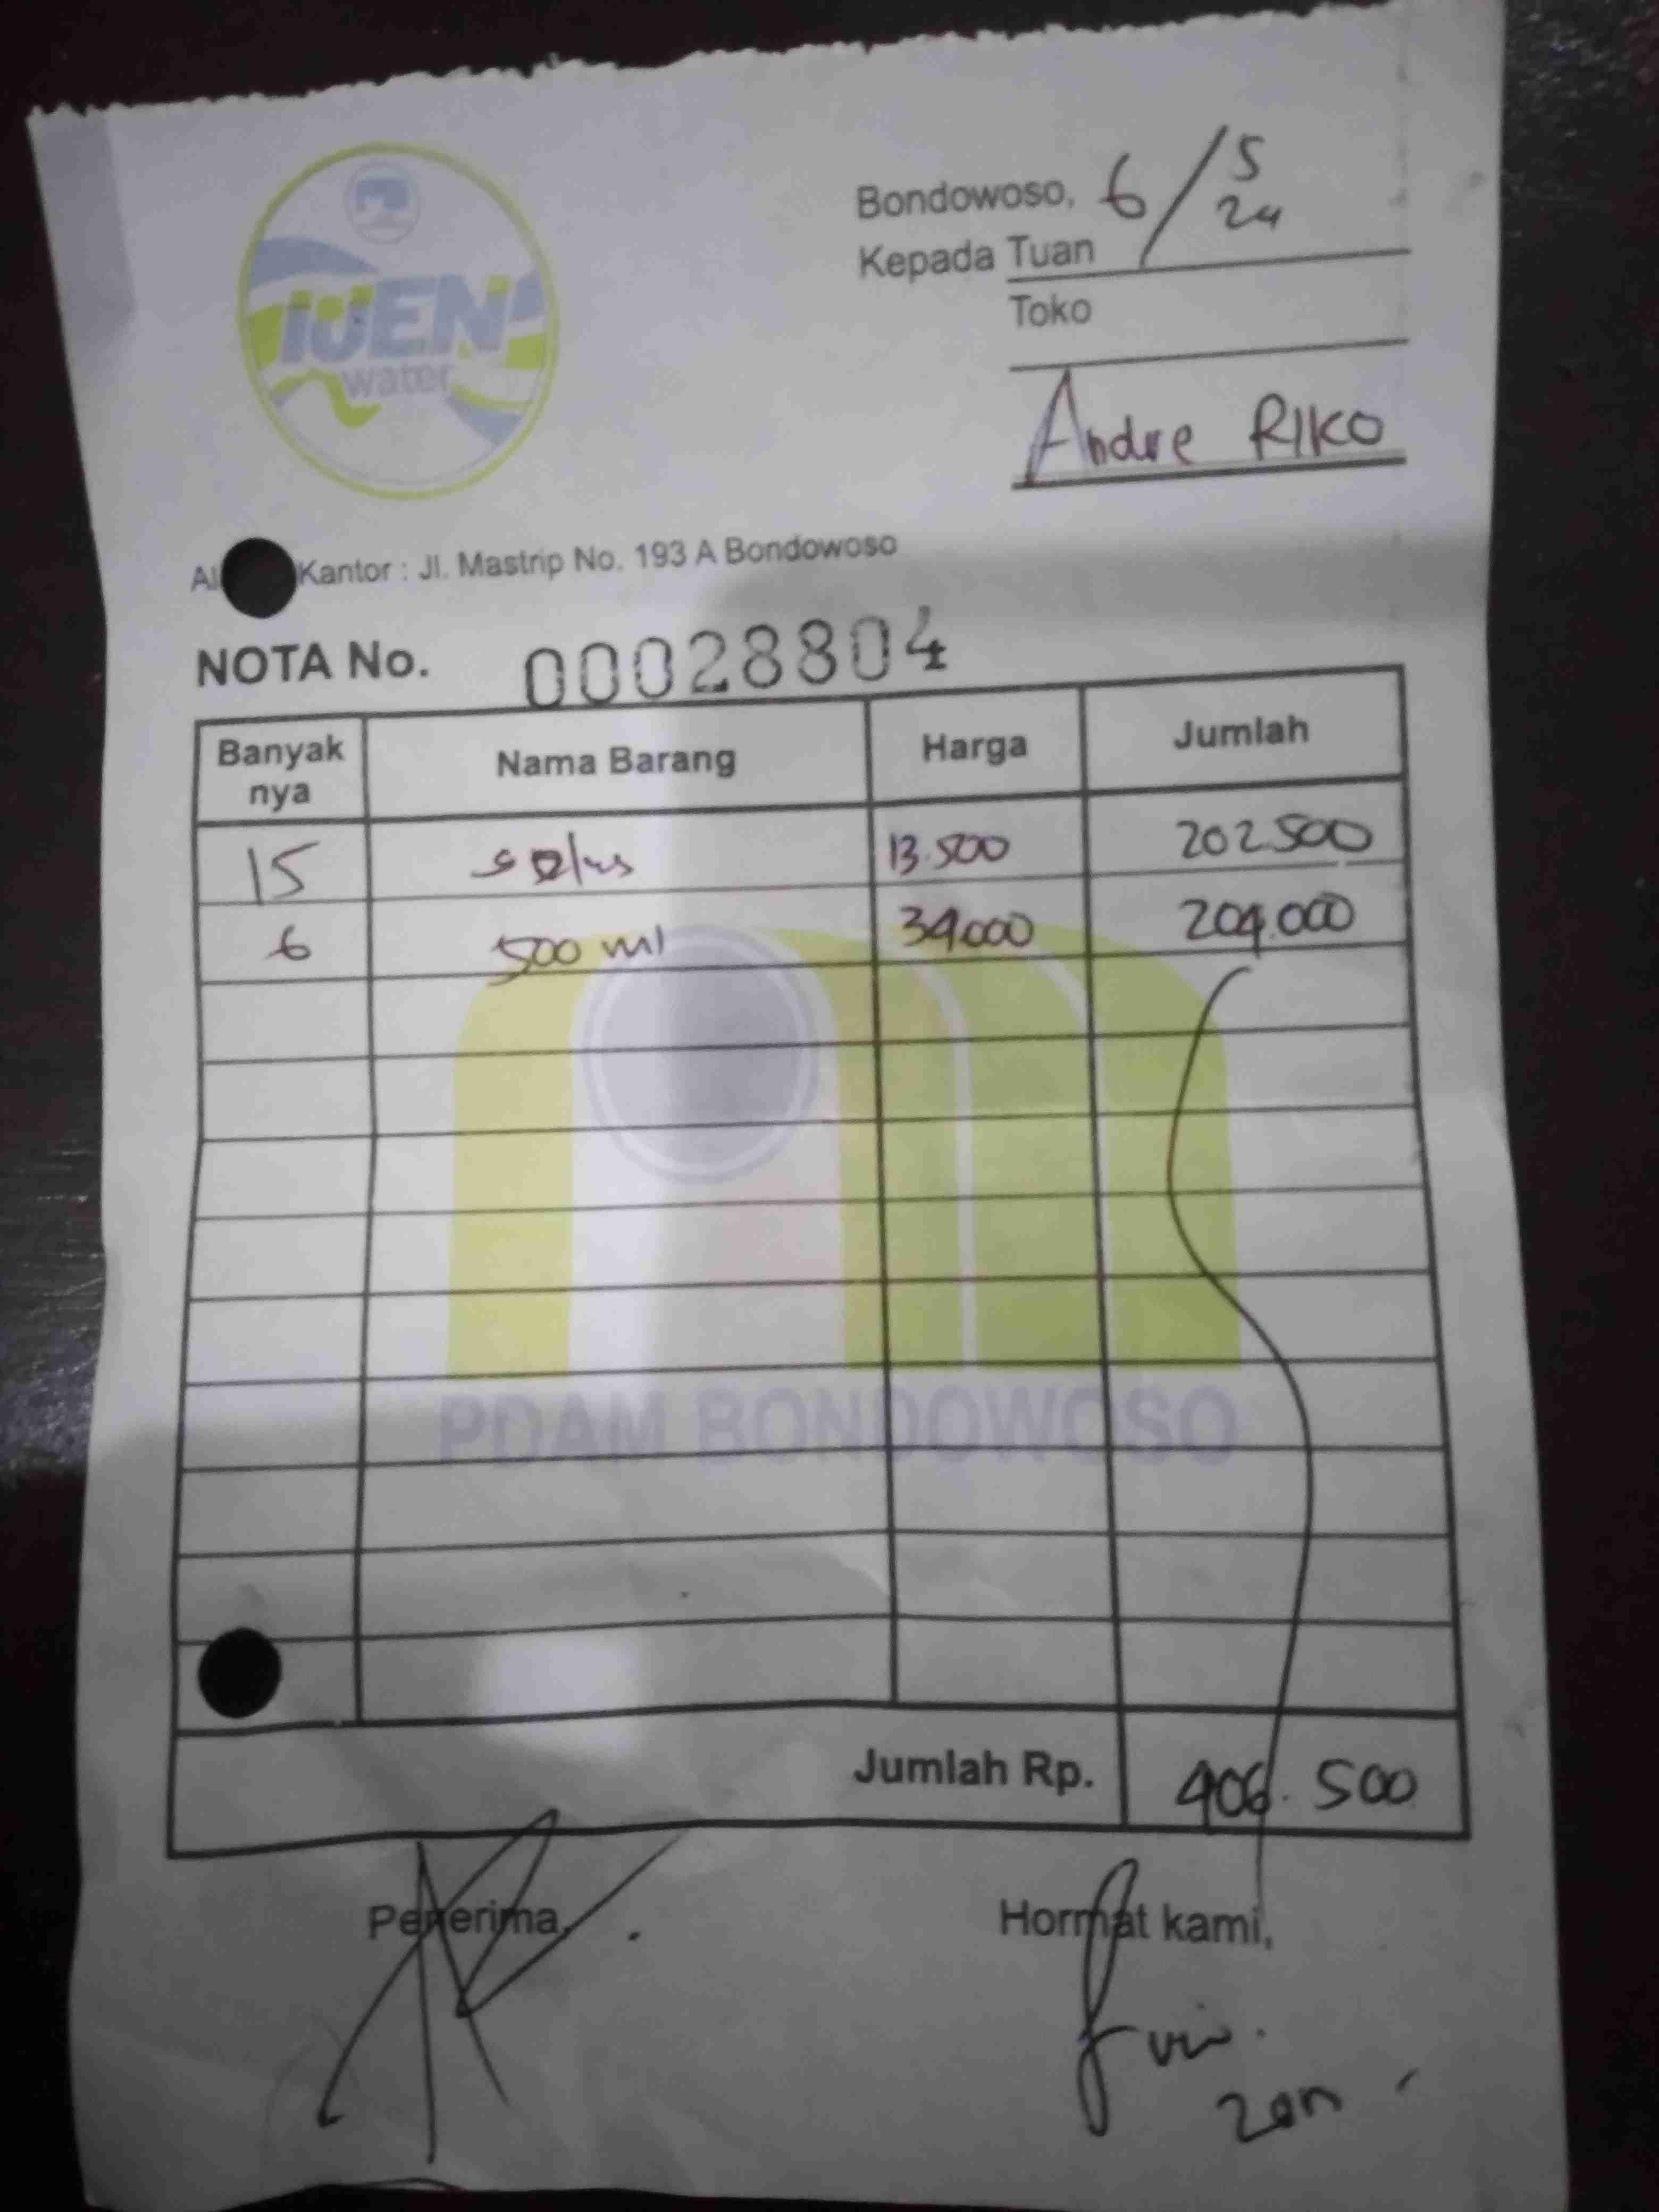 IJEN
water
Bondowoso, 6/5 24
Kepada Tuan
Toko
Andre RIKO
Kantor : Jl. Mastrip No. 193 A Bondowoso
NOTA No. 00028804
Banyak nya Nama Barang Harga Jumlah
15 13.500 202.500
6 500 ml 34.000 204.000
PDAM BONDOWOSO
Jumlah Rp. 406.500
Penerima, Hormat kami,